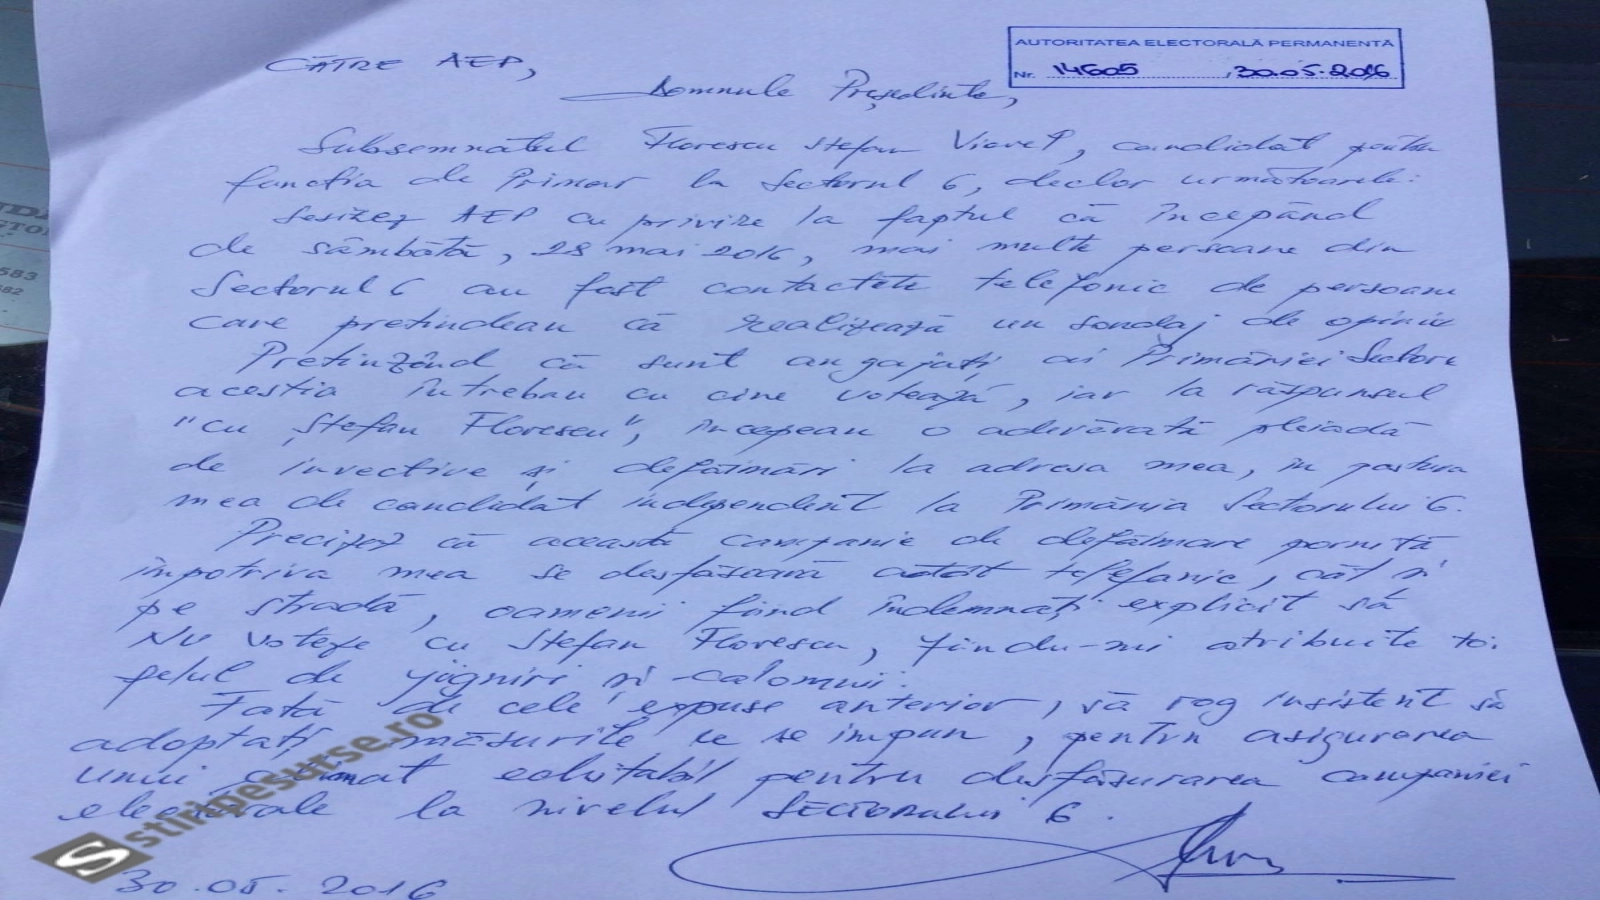 AUTORITATEA ELECTORALĂ PERMANENTĂ
Nr. 14605 , 30.05.2016
CĂTRE AEP,
Domnule Președinte,
Subsemnatul Florescu Ștefan Viorel, candidat pentru
funcția de Primar la Sectorul 6, declar următoarele:
Sesizez AEP cu privire la faptul că începând
de sâmbătă, 28 mai 2016, mai multe persoane din
Sectorul 6 au fost contactate telefonic de persoane
care pretindeau că realizează un sondaj de opinie
Pretinzând că sunt angajați ai Primăriei Sectoru
aceștia întrebau cu cine votează, iar la răspunsul
"cu Ștefan Florescu", începeau o adevărată pleiadă
de invective și defăimări la adresa mea, în postura
mea de candidat independent la Primăria Sectorului 6.
Precizez că această campanie de defăimare pornită
împotriva mea se desfășoară atât telefonic, cât și
pe stradă, oamenii fiind îndemnați explicit să
NU voteze cu Ștefan Florescu, fiindu-mi atribuite tot
felul de jigniri și calomnii.
Față de cele expuse anterior, vă rog insistent să
adoptați măsurile ce se impun, pentru asigurarea
unui climat echitabil pentru desfășurarea campaniei
electorale la nivelul SECTORULUI 6.
30.05.2016
S stiripesurse.ro
583
682